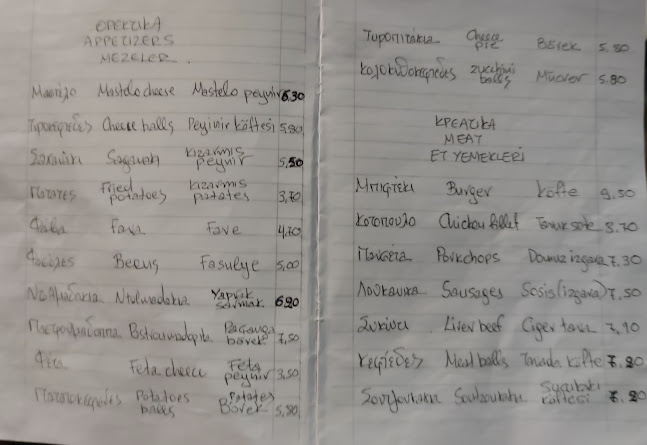 ΟΡΕΚΤΙΚΑ
APPETIZERS
MEZELER
Μαστέλο Mastelo cheese Mastelo peynir 6.30
Τυροκεφτέδες Cheese balls Peyinir köftesi 5,90
Σαγανάκι Saganaki kizarmis peynir 5,50
Πατάτες Fried potatoes kizarmis patates 3,70
Φάβα Fava Fave 4,70
Φασόλες Beans Fasulye 5,00
Ντολμαδάκια Ntolmadakia Yaprak sarmak 6.20
börek 7,50
Φέτα Feta cheese Feta peynir 3,50
Πατατοκεφτέδες Potatoes balls Potates Börek 5,80
Τυροπιτάκια Cheese pie Börek 5.80
Κολοκυθοκεφτέδες zucchini balls Mücver 5,80
ΚΡΕΑΤΙΚΑ
MEAT
ET YEMEKLERİ
Μπιφτέκι Burger köfte 9.50
Κοτόπουλο Chicken fillet Tavuk sote 8.70
Πανσέτα Porkchops Domuz izgara 7.30
Λουκάνικα Sausages Sosis (izgara) 7,50
Συκώτι Liver beef Ciger tava 7,90
Κεφτέδες Meat balls köfte 7.20
Σουτζουκάκια Soutzoukakia köftesi 7.20